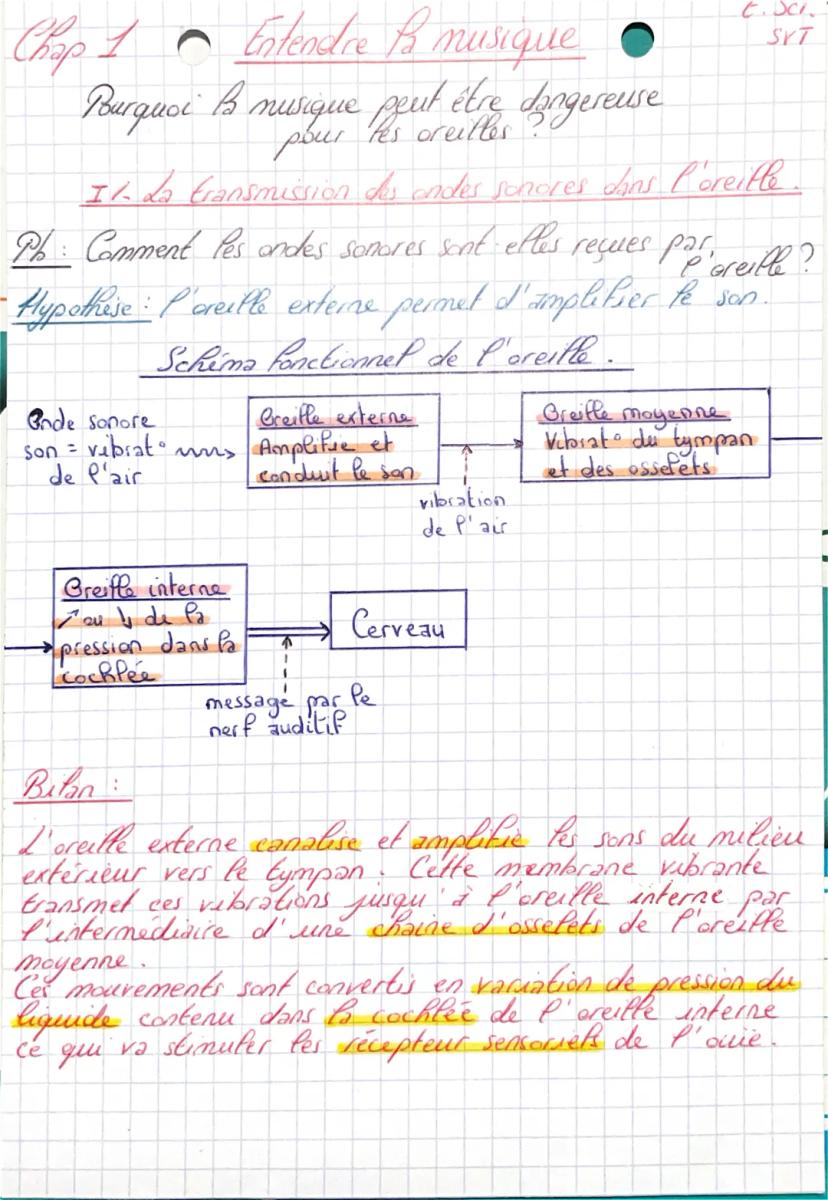 Chap 1
Entendre la musique
E. Sci.
SVT
Pourquoi la musique peut être dangereuse
pour les oreilles ?
I/- La transmission des ondes sonores dans l'oreille.
Pb : Comment les ondes sonores sont-elles reçues par
l'oreille ?
Hypothèse : l'oreille externe permet d'amplifier le son.
Schéma fonctionnel de l'oreille.
Onde sonore
son = vibrat°
de l'air
Oreille externe
Amplifie et
conduit le son
vibration
de l'air
Oreille moyenne
Vibrat° du tympan
et des osselets
Oreille interne
↗ ou ↘ de la
pression dans la
cochlée
message par le
nerf auditif
Cerveau
Bilan :
L'oreille externe canalise et amplifie les sons du milieu
extérieur vers le tympan. Cette membrane vibrante
transmet ces vibrations jusqu'à l'oreille interne par
l'intermédiaire d'une chaine d'osselets de l'oreille
moyenne.
Ces mouvements sont convertis en variation de pression du
liquide contenu dans la cochlée de l'oreille interne
ce qui va stimuler les récepteur sensoriels de l'ouïe.